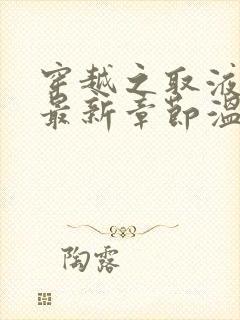 穿越之取液
最新章节温
陶露